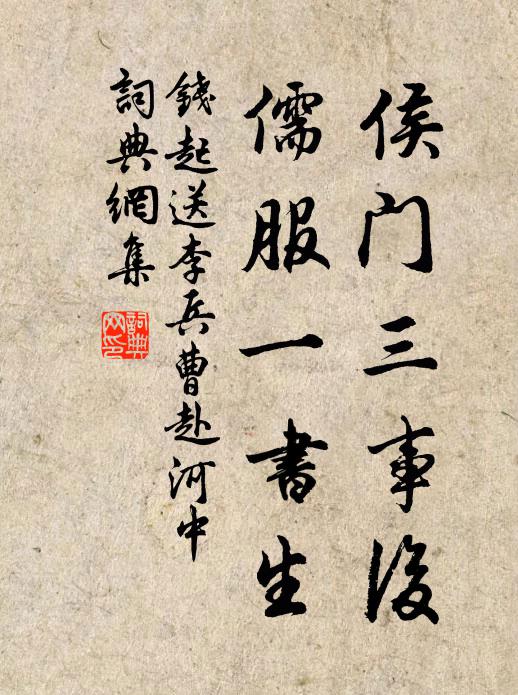 侯门三事後
儒服一書生
錢起送李兵曹赴河中
詞典網集
詞典网印